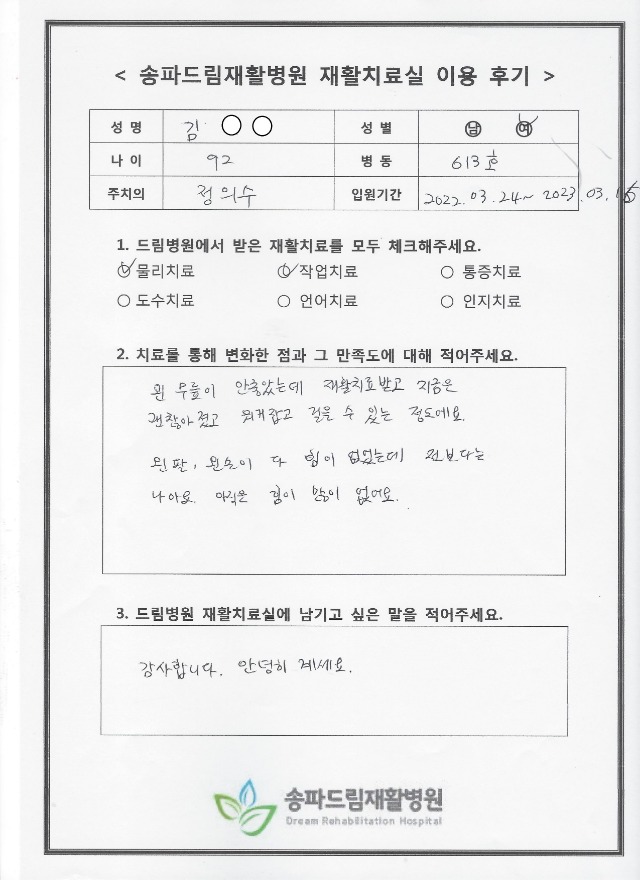 < 송파드림재활병원 재활치료실 이용 후기 >
성 명 김 ○ ○ 성 별 남 여
나 이 92 병 동 613호
주치의 정의수 입원기간 2022.03.24~2023.03.15
1. 드림병원에서 받은 재활치료를 모두 체크해주세요.
물리치료 작업치료 ○ 통증치료
○ 도수치료 ○ 언어치료 ○ 인지치료
2. 치료를 통해 변화한 점과 그 만족도에 대해 적어주세요.
왼 무릎이 안좋았는데 재활치료받고 지금은
괜찮아졌고 워커잡고 걸을 수 있는 정도에요.
왼팔, 왼손이 다 힘이 없었는데 전보다는
나아요. 아직은 힘이 많이 없어요.
3. 드림병원 재활치료실에 남기고 싶은 말을 적어주세요.
감사합니다. 안녕히 계세요.
송파드림재활병원
Dream Rehabilitation Hospital